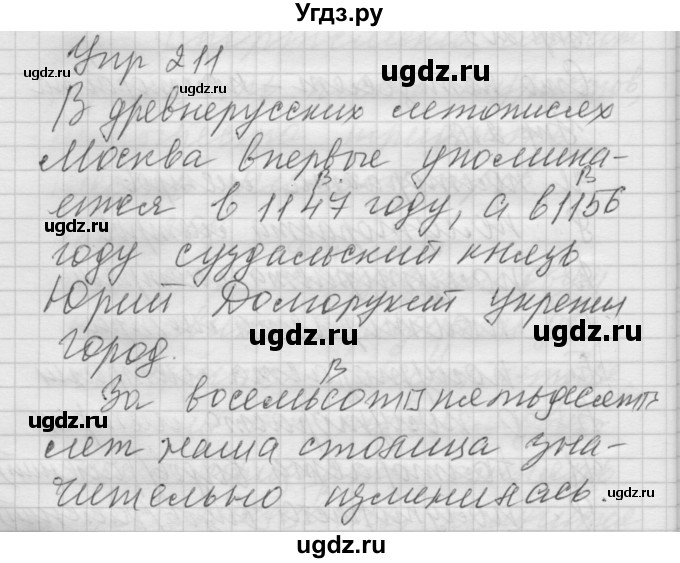 Угдз.ру
Упр 211
В древнерусских летописях
Москва впервые упомина-
ется в 1147 году, а в 1156
году суздальский князь
Юрий Долгорукий укрепил
город.
За восемьсот пятьдесят
лет наша столица зна-
чительно изменилась.
ugdz.ru
ugdz.ru
ugdz.ru
ugdz.ru
ugdz.ru
ugdz.ru
ugdz.ru
ugdz.ru
ugdz.ru
ugdz.ru